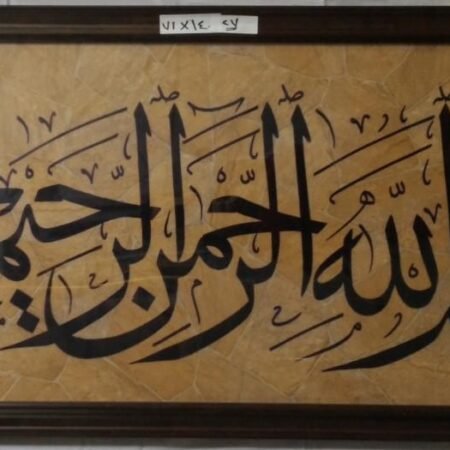 ٧١X١٤٠
الله الرحمن الرحيم